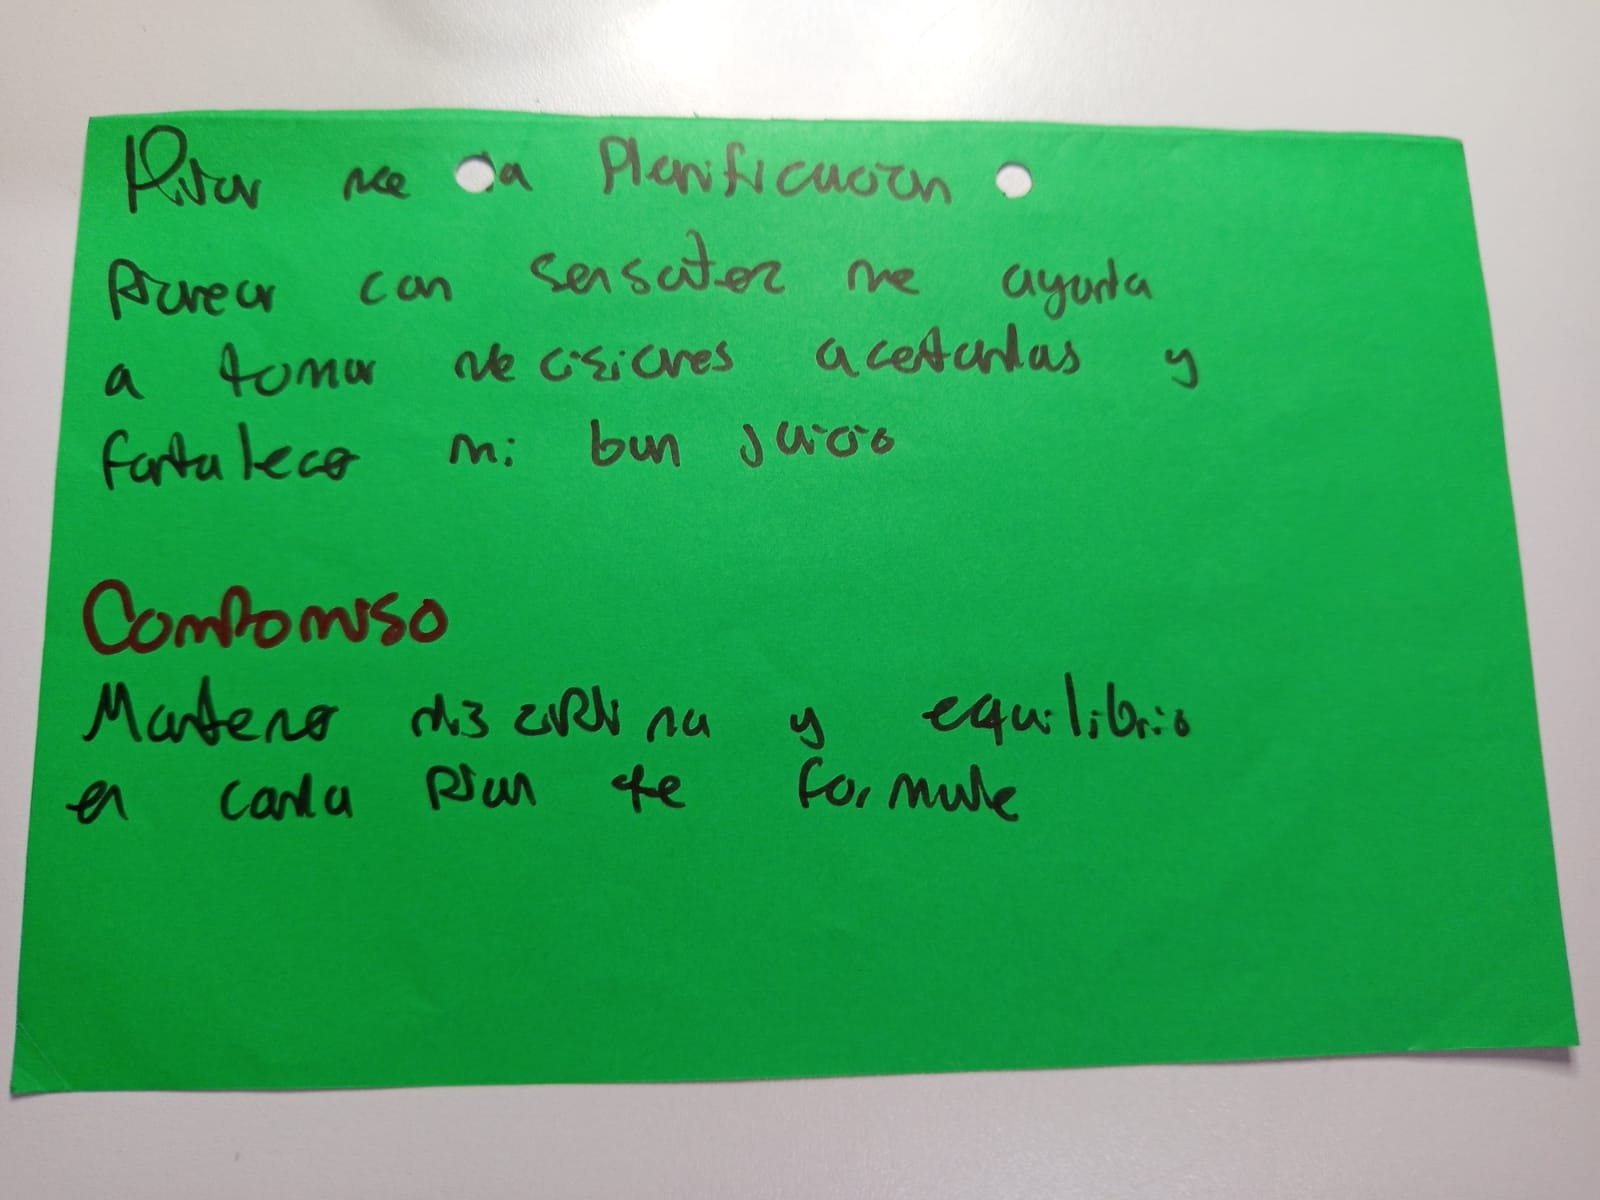 Pilar de la Planificación
Planear con sensatez me ayuda
a tomar decisiones acertadas y
fortalece mi buen juicio
Compromiso
Mantener disciplina y equilibrio
en cada plan que formule